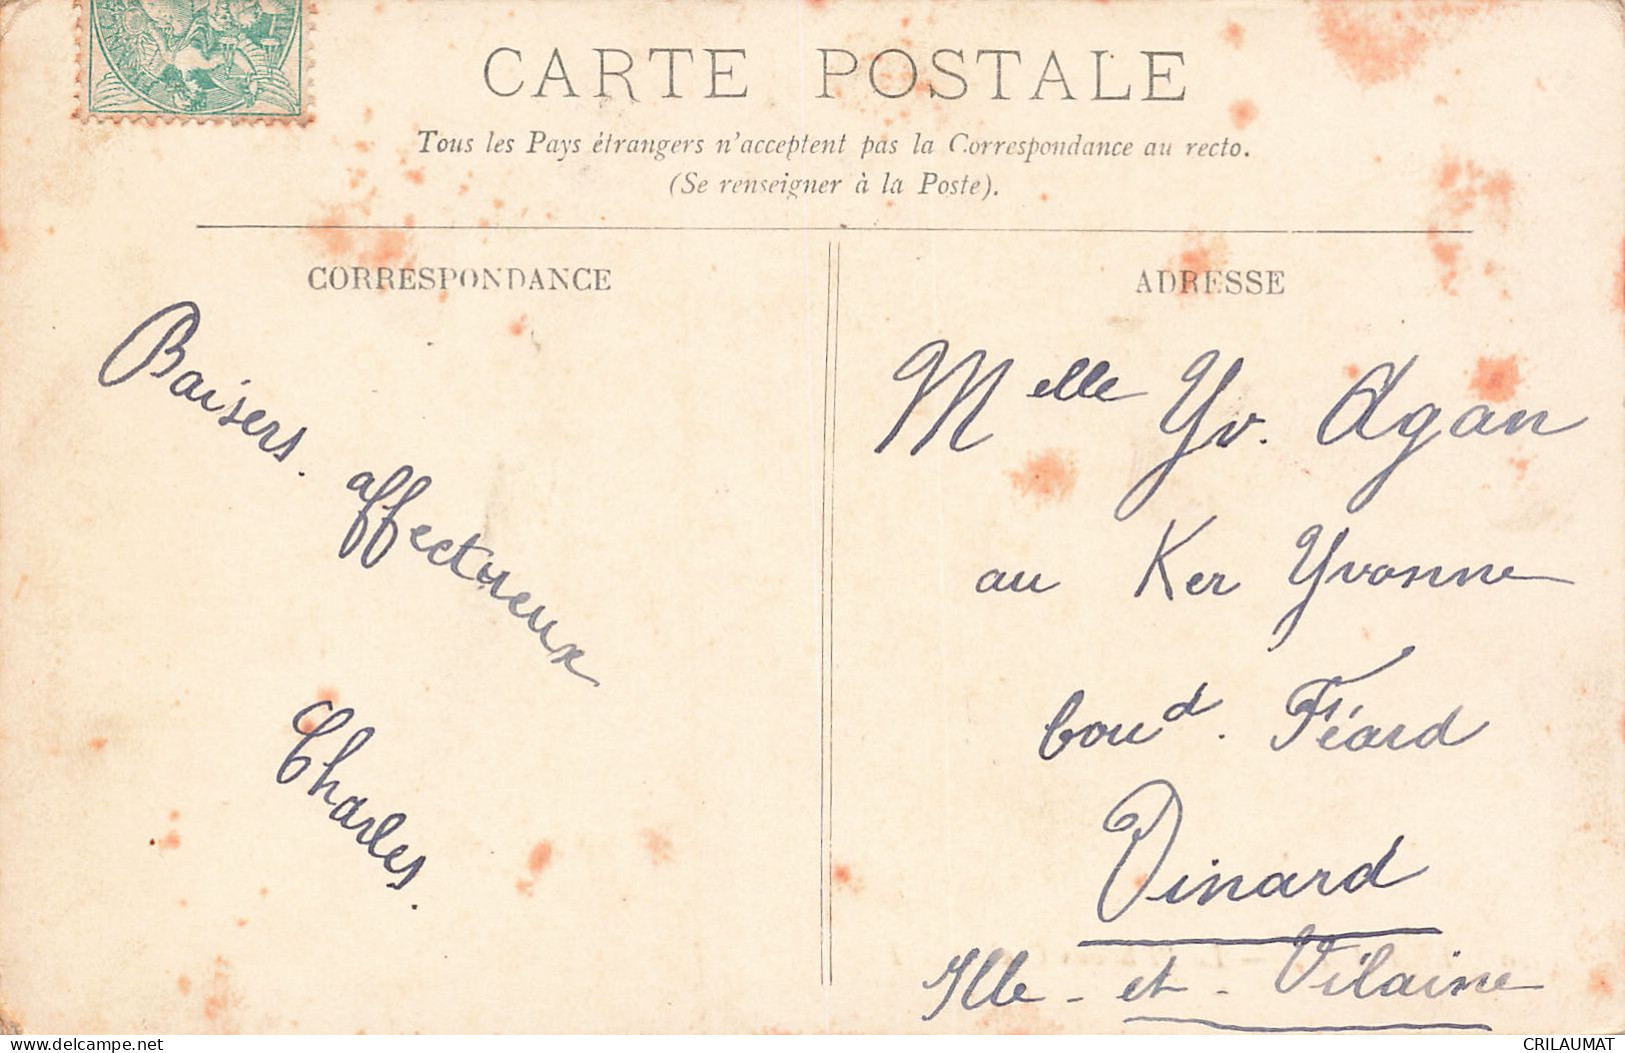 CARTE POSTALE
Tous les Pays étrangers n'acceptent pas la Correspondance au recto.
(Se renseigner à la Poste).
CORRESPONDANCE
Baisers affectueux
Charles.
ADRESSE
Melle Yv. Agan
au Ker Yvonne
boud. Féard
Dinard
Ille-et-Vilaine
delcampe.net
CRILAUMAT